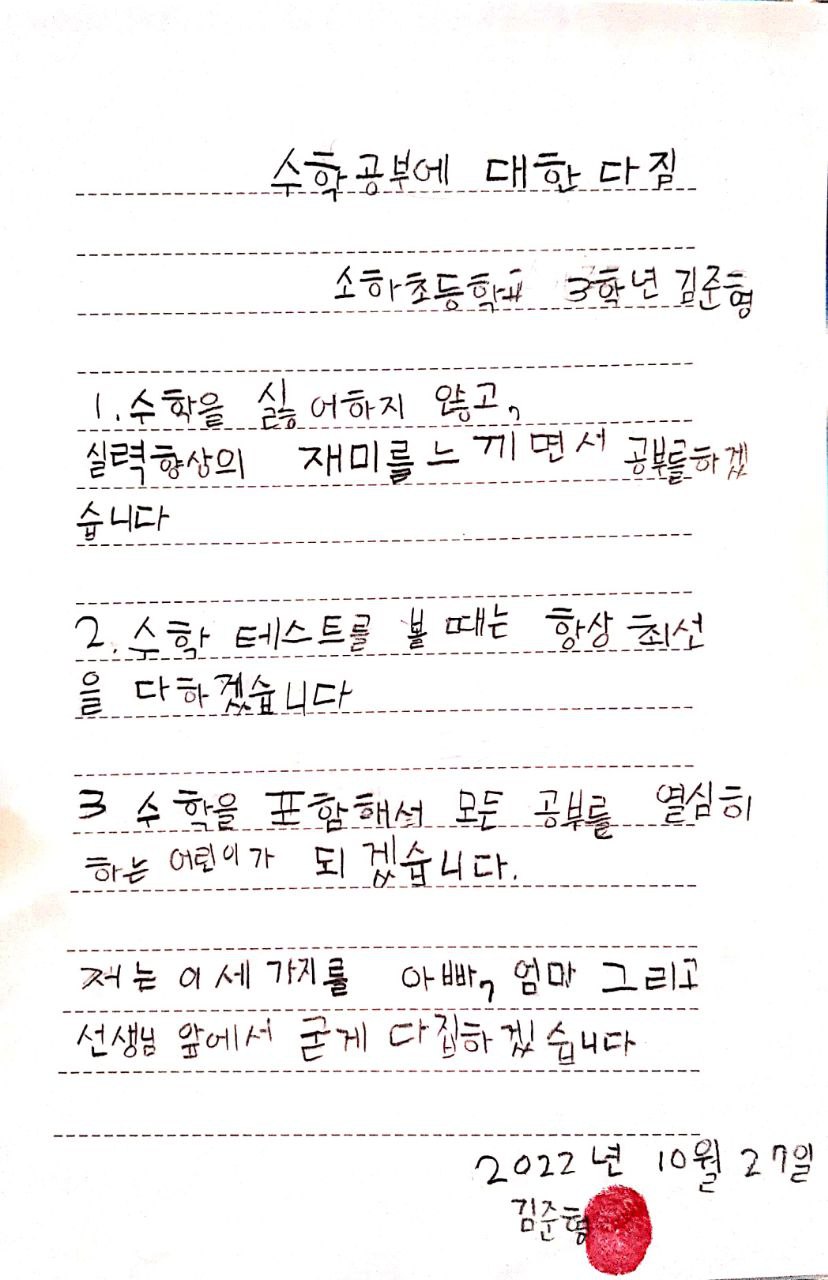 수학공부에 대한 다짐
소하초등학교 3학년 김준형
1. 수학을 싫어하지 않고,
실력향상의 재미를 느끼면서 공부를하겠
습니다
2. 수학 테스트를 볼 때는 항상 최선
을 다하겠습니다
3 수학을 포함해서 모든 공부를 열심히
하는 어린이가 되겠습니다.
저는 이 세 가지를 아빠, 엄마 그리고
선생님 앞에서 굳게 다짐하겠습니다
2022년 10월 27일
김준형